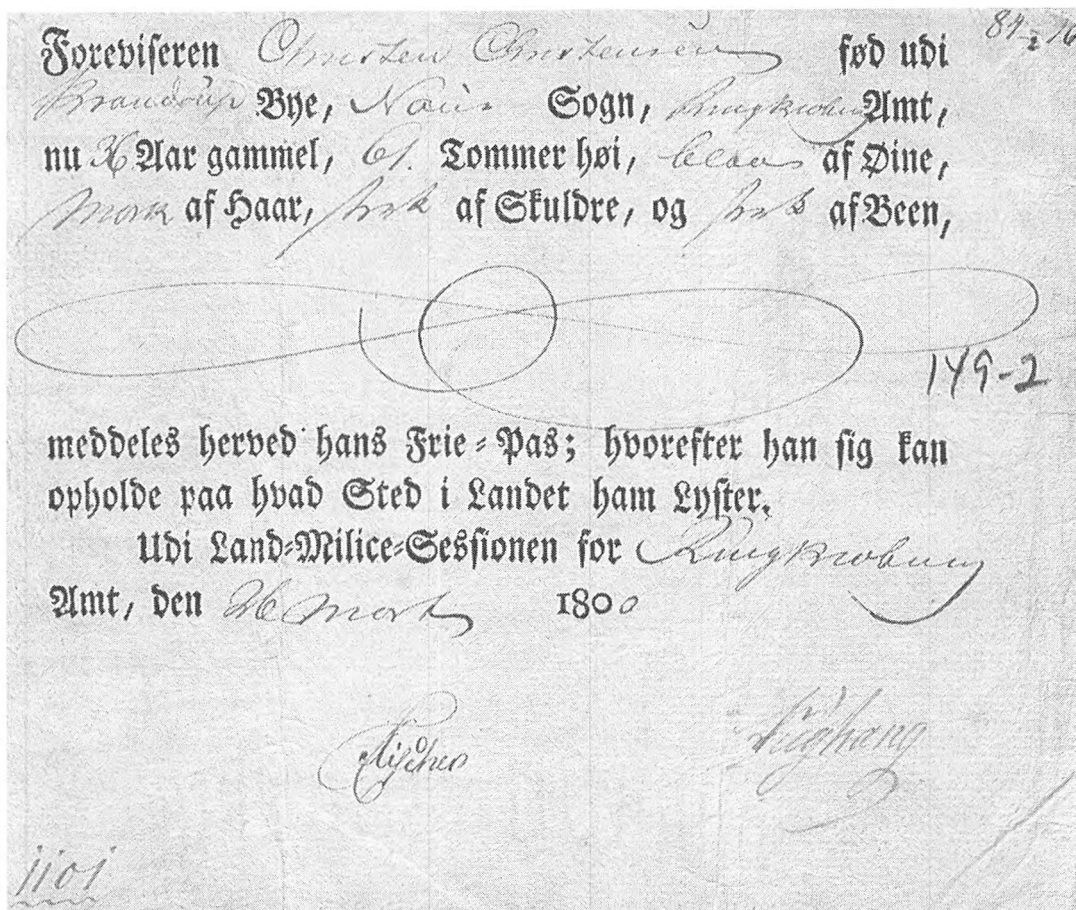 84-2-16
Foreviseren Christen Christensen fød udi
Brandrup Bye, Nour Sogn, Ringkiøbing Amt,
nu 36 Aar gammel, 61. Tommer høi, blaa af Øine,
Mørk af Haar, stærk af Skuldre, og stærk af Been,
149-2
meddeles herved hans Frie-Pas; hvorefter han sig kan
opholde paa hvad Sted i Landet ham Lyster.
Udi Land-Milice-Sessionen for Ringkiøbing
Amt, den 26 Mart 1800
Fischer
1101